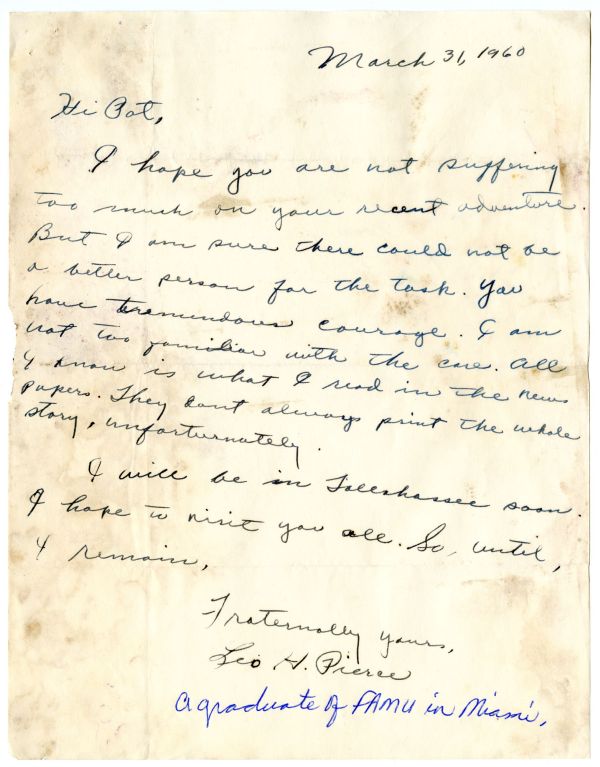 March 31, 1960
Hi Pat,
I hope you are not suffering
too much on your recent adventure.
But I am sure there could not be
a better person for the task. You
have tremendous courage. I am
not too familiar with the case. All
I know is what I read in the news
papers. They dont always print the whole
story, unforturnately.
I will be in Tallahassee soon.
I hope to visit you all. So, until,
I remain,
Fraternally yours,
Leo H. Pierce
A graduate of FAMU in Miami.